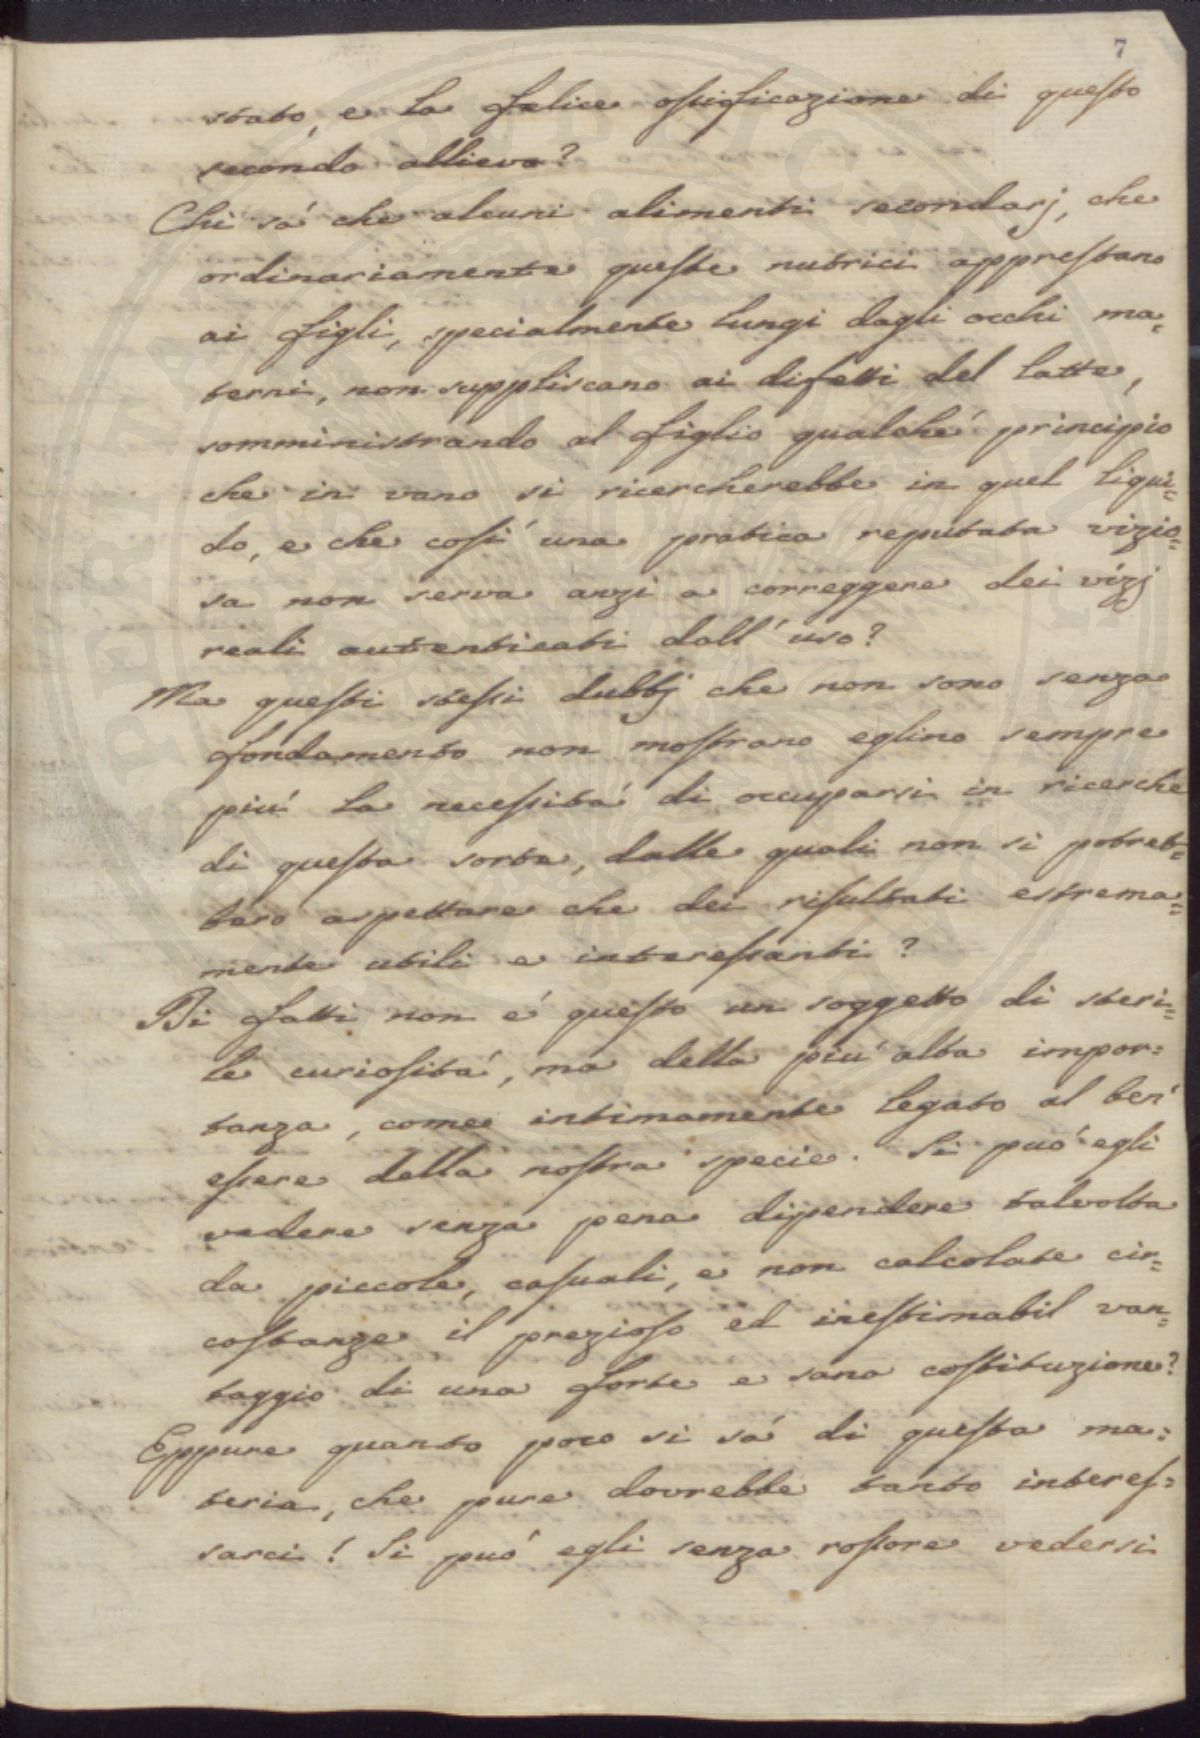 7
stato, e la felice ossificazione di questo
secondo allievo?
Chi sá che alcuni alimenti secondarj, che
ordinariamente queste nutrici apprestano
ai figli, specialmente lungi dagli occhi ma=
terni, non suppliscano ai difetti del latte,
somministrando al figlio qualche principio
che in vano si ricercherebbe in quel liqui=
do, e che cosi una pratica reputata vizio=
sa non serva anzi a correggere dei vizj
reali autenticati dall'uso?
Ma questi stessi dubbj che non sono senza
fondamento non mostrano eglino sempre
piú la necessitá di occuparsi in ricerche
di questa sorta, dalle quali non si potreb=
bero aspettare che dei risultati estrema=
mente utili e interessanti?
Di fatti non é questo un soggetto di steri=
le curiositá, ma della piú alta impor=
tanza, come intimamente legato al ben'
essere della nostra specie. Si puó egli
vedere senza pena dipendere talvolta
da piccole, casuali, e non calcolate cir=
costanze il prezioso ed inestimabil van=
taggio di una forte e sana costituzione?
Eppure quanto poco si sá di questa ma=
teria, che pure dovrebbe tanto interes=
sarci! Si puó egli senza rossore vedersi